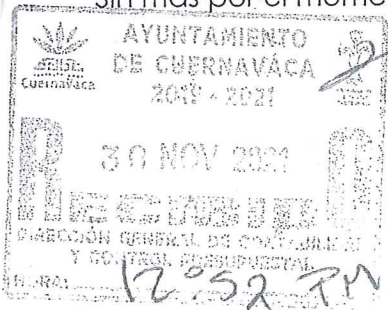 Sin más por el mome
AYUNTAMIENTO
DE CUERNAVACA
Cuernavaca
2019 - 2021
30 NOV 2021
RECIBIDO
DIRECCIÓN GENERAL DE CONTABILIDAD
Y CONTROL PRESUPUESTAL
HORA: 12:52 PM